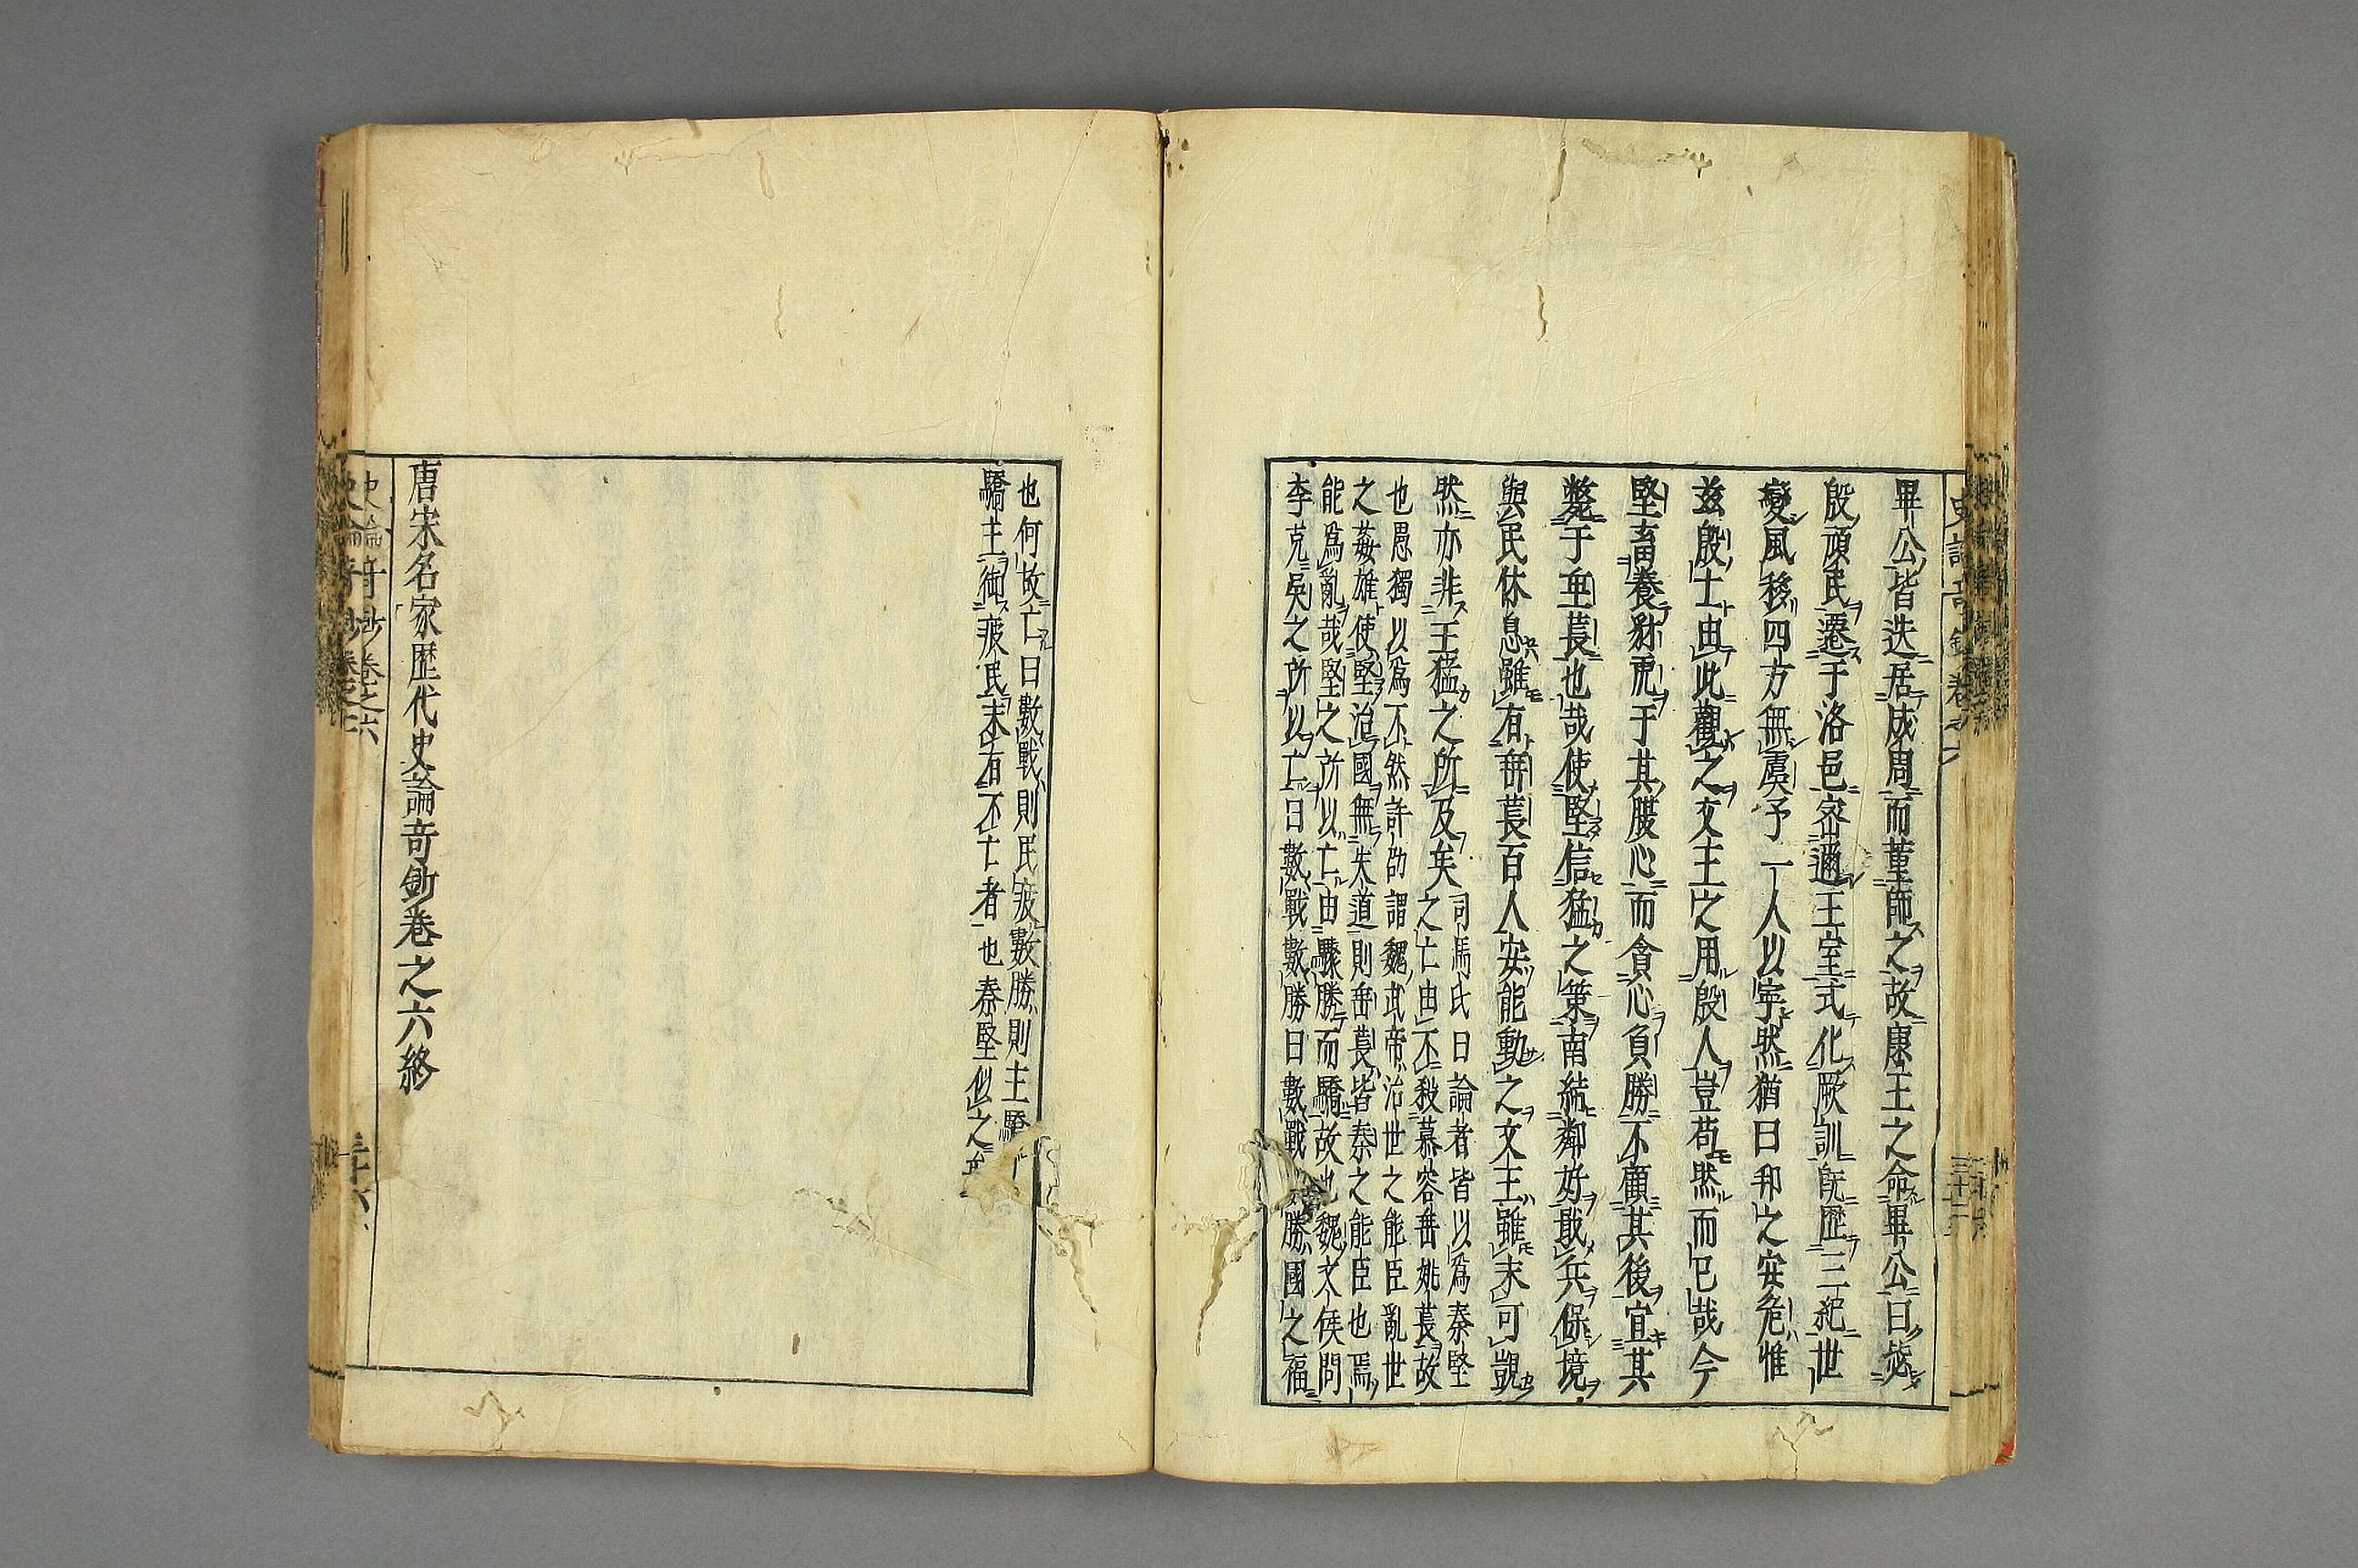 畢公皆迭居成周而董師之故康王之命畢公曰毖
殷頑民遷于洛邑密邇王室式化厥訓既歷三紀世
變風移四方無虞予一人以寧然猶曰邦之安危惟
茲殷士由此觀之文王之用殷人豈苟然而已哉今
堅畜養豺虎于其腹心而貪心負勝不顧其後宜其
斃于垂萇也哉使堅信猛之策南結鄰好戢兵保境
與民休息雖有垂萇百人安能動之文王雖末可覬
然亦非王猛之所及矣
司馬氏曰論者皆以為秦堅
之亡由不殺慕容垂姚萇故
也愚獨以為不然許劭謂魏武帝治世之能臣亂世
之姦雄使堅治國無失道則垂萇皆秦之能臣也焉
能為亂哉堅之所以亡由驟勝而驕故也魏文侯問
李克吳之所以亡曰數戰數勝曰數戰勝國之福
也何故亡曰數戰則民疲數勝則主驕
驕主御疲民未有不亡者也秦堅似之矣
唐宋名家歷代史論奇鈔卷之六終
史論奇抄卷之六
三十六